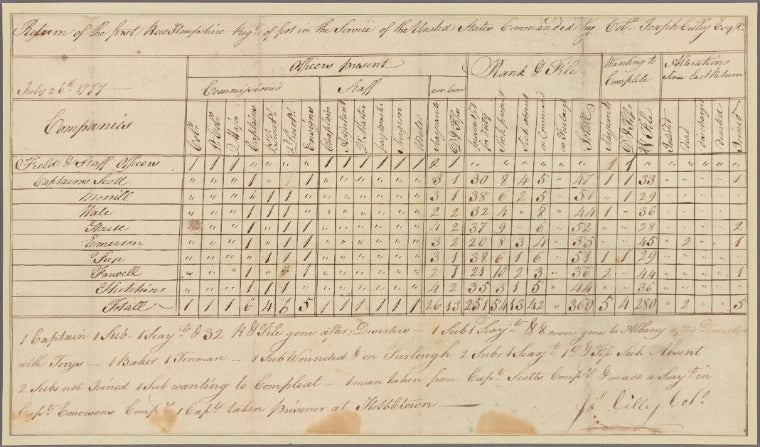 Return of the first New Hampshire Regt of foot in the Service of the United States Commanded by Colo Joseph Cilley Esqr
July 26th 1777
Officers present
Commissioned
Staff
Rank & File
Wanting to Complete
Alterations Since Last Return
Companies
Colo
Lt Colo
Major
Captains
Ensigns
Captain
Adjutant
Pay master
Surgeon
Mate
Sergants
D & Fifes
present fit for duty
Sick present
Sick absent
on Command
on Furlough
Total
Sergants
D & Fifes
R & File
Dead
discharged
deserted
Joined
Field & Staff Officers 1 1 1 " " " " 1 1 1 1 1 1 2 1
Captains Scott 3 1 30 8 4 5 " 47 1 1 33 1
3 1 38 6 2 5 " 51 1 29
Wale 2 2 32 4 " 8 " 44 1 " 36
4 2 37 9 " 6 " 52 " " 28 2
Emerson 3 2 20 8 3 4 " 35 " " 45 " 2 1
3 1 38 6 1 6 " 51 1 1 29
Farwell 2 1 21 10 2 3 " 36 2 " 44 1
Hutchins 4 2 35 3 1 5 " 44 " " 36
Totall 1 1 1 6 4 6 5 1 1 1 1 1 1 26 13 251 54 13 42 " 360 5 4 280 " 2 " " 5
1 Captain 1 Sub 1 Sergt & 32 R & File gone after Deserters – 1 Sub 1 Sergt & 8 men gone to Albany after Deserters
with Torys – 1 Baker 1 Tinman – 1 Sub Wounded & on Furlough 2 Subs 1 Sergt 1 D & Fife Sick Absent
2 Subs not Joined 1 Sub wanting to Compleat – 1 man taken from Capt Scotts Compy & made a Sergt in
Capt Emersons Compy 1 Capt taken prisoner at Hubbletown
Js Cilley Colo